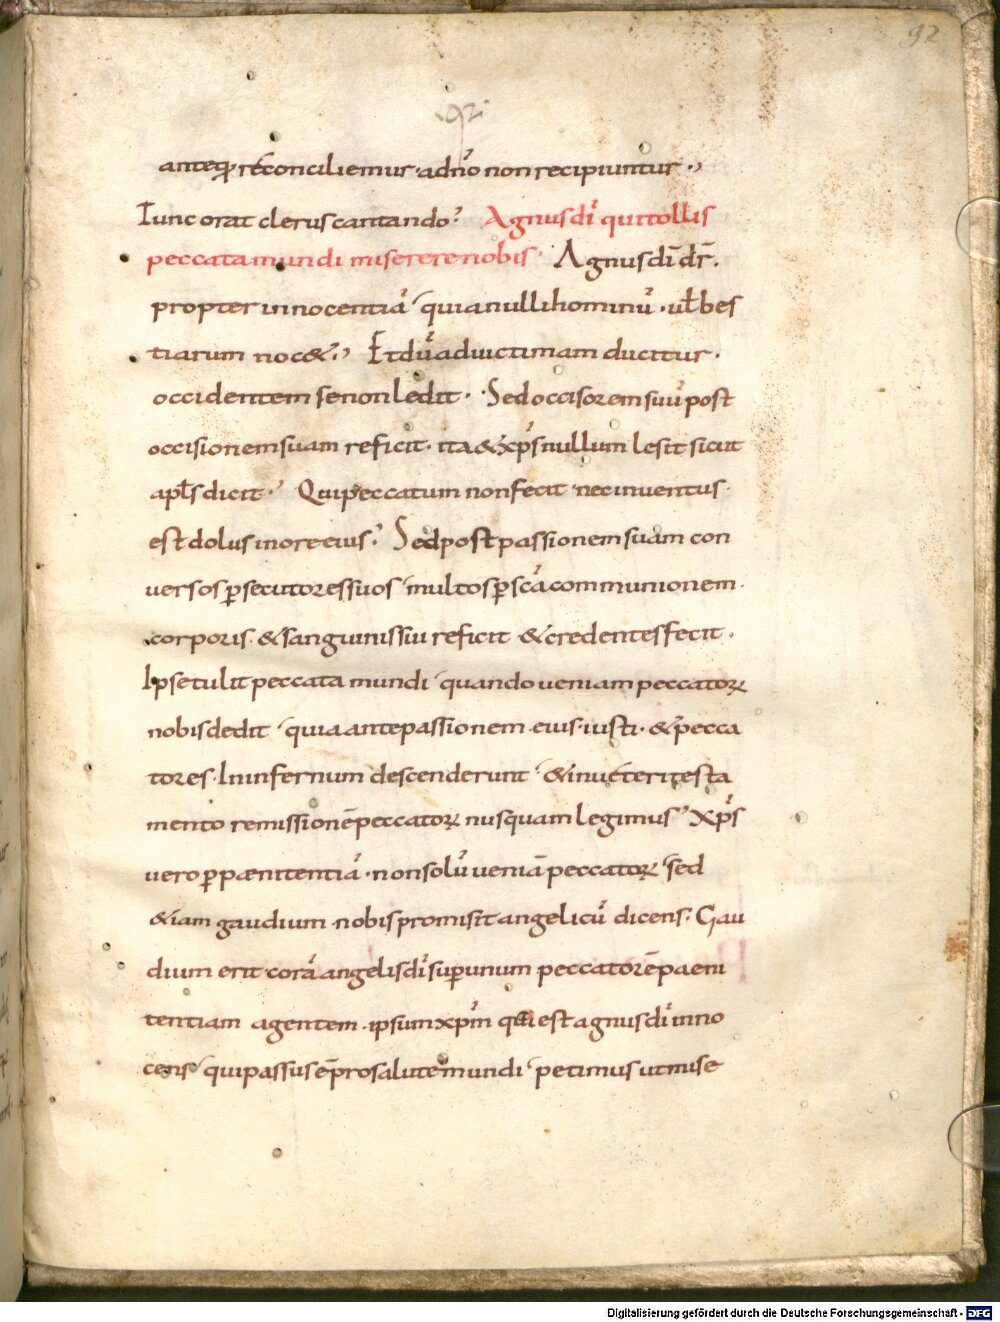 92
.92.
anteq̄ reconciliemur · ad dn̄o non recipiuntur ·,
Tunc orat clerus cantando? Agnus dī qui tollis
peccata mundi miserere nobis· Agnus dī dr̄.
propter innocentiā quia nulli hominū · ul̄ bes
tiarum noc&·, Et dū ad uictimam ducitur ·
occidentem se non ledit · Sed occisorem suū post
occisionem suam reficit · ita & xp̄s nullum lesit sicut
apl̄s dicit · Qui peccatum non fecit nec inuentus ·
est dolus in ore eius? Sed post passionem suam con
uersos p̄secutores suos multos p̄ scā communionem ·
corporis · & sanguinis sui reficit · & credentes fecit ·
Ipse tulit peccata mundi quando ueniam peccatoꝝ
nobis dedit quia ante passionem eius · iusti · & pecca
tores · In infernum descenderunt & in ueteri testa
mento remissionē peccatoꝝ nusquam legimus xp̄s
uero p̄ pænitentiā · non solū ueniā peccatoꝝ sed
&iam gaudium nobis promisit angelicū dicens · Gau
dium erit corā angelis dī sup̄ unum peccatorē paeni
tentiam agentem · ipsum xp̄m qui est agnus dī inno
cens qui passus ē pro salute mundi petimus ut mise
Digitalisierung gefördert durch die Deutsche Forschungsgemeinschaft - DFG